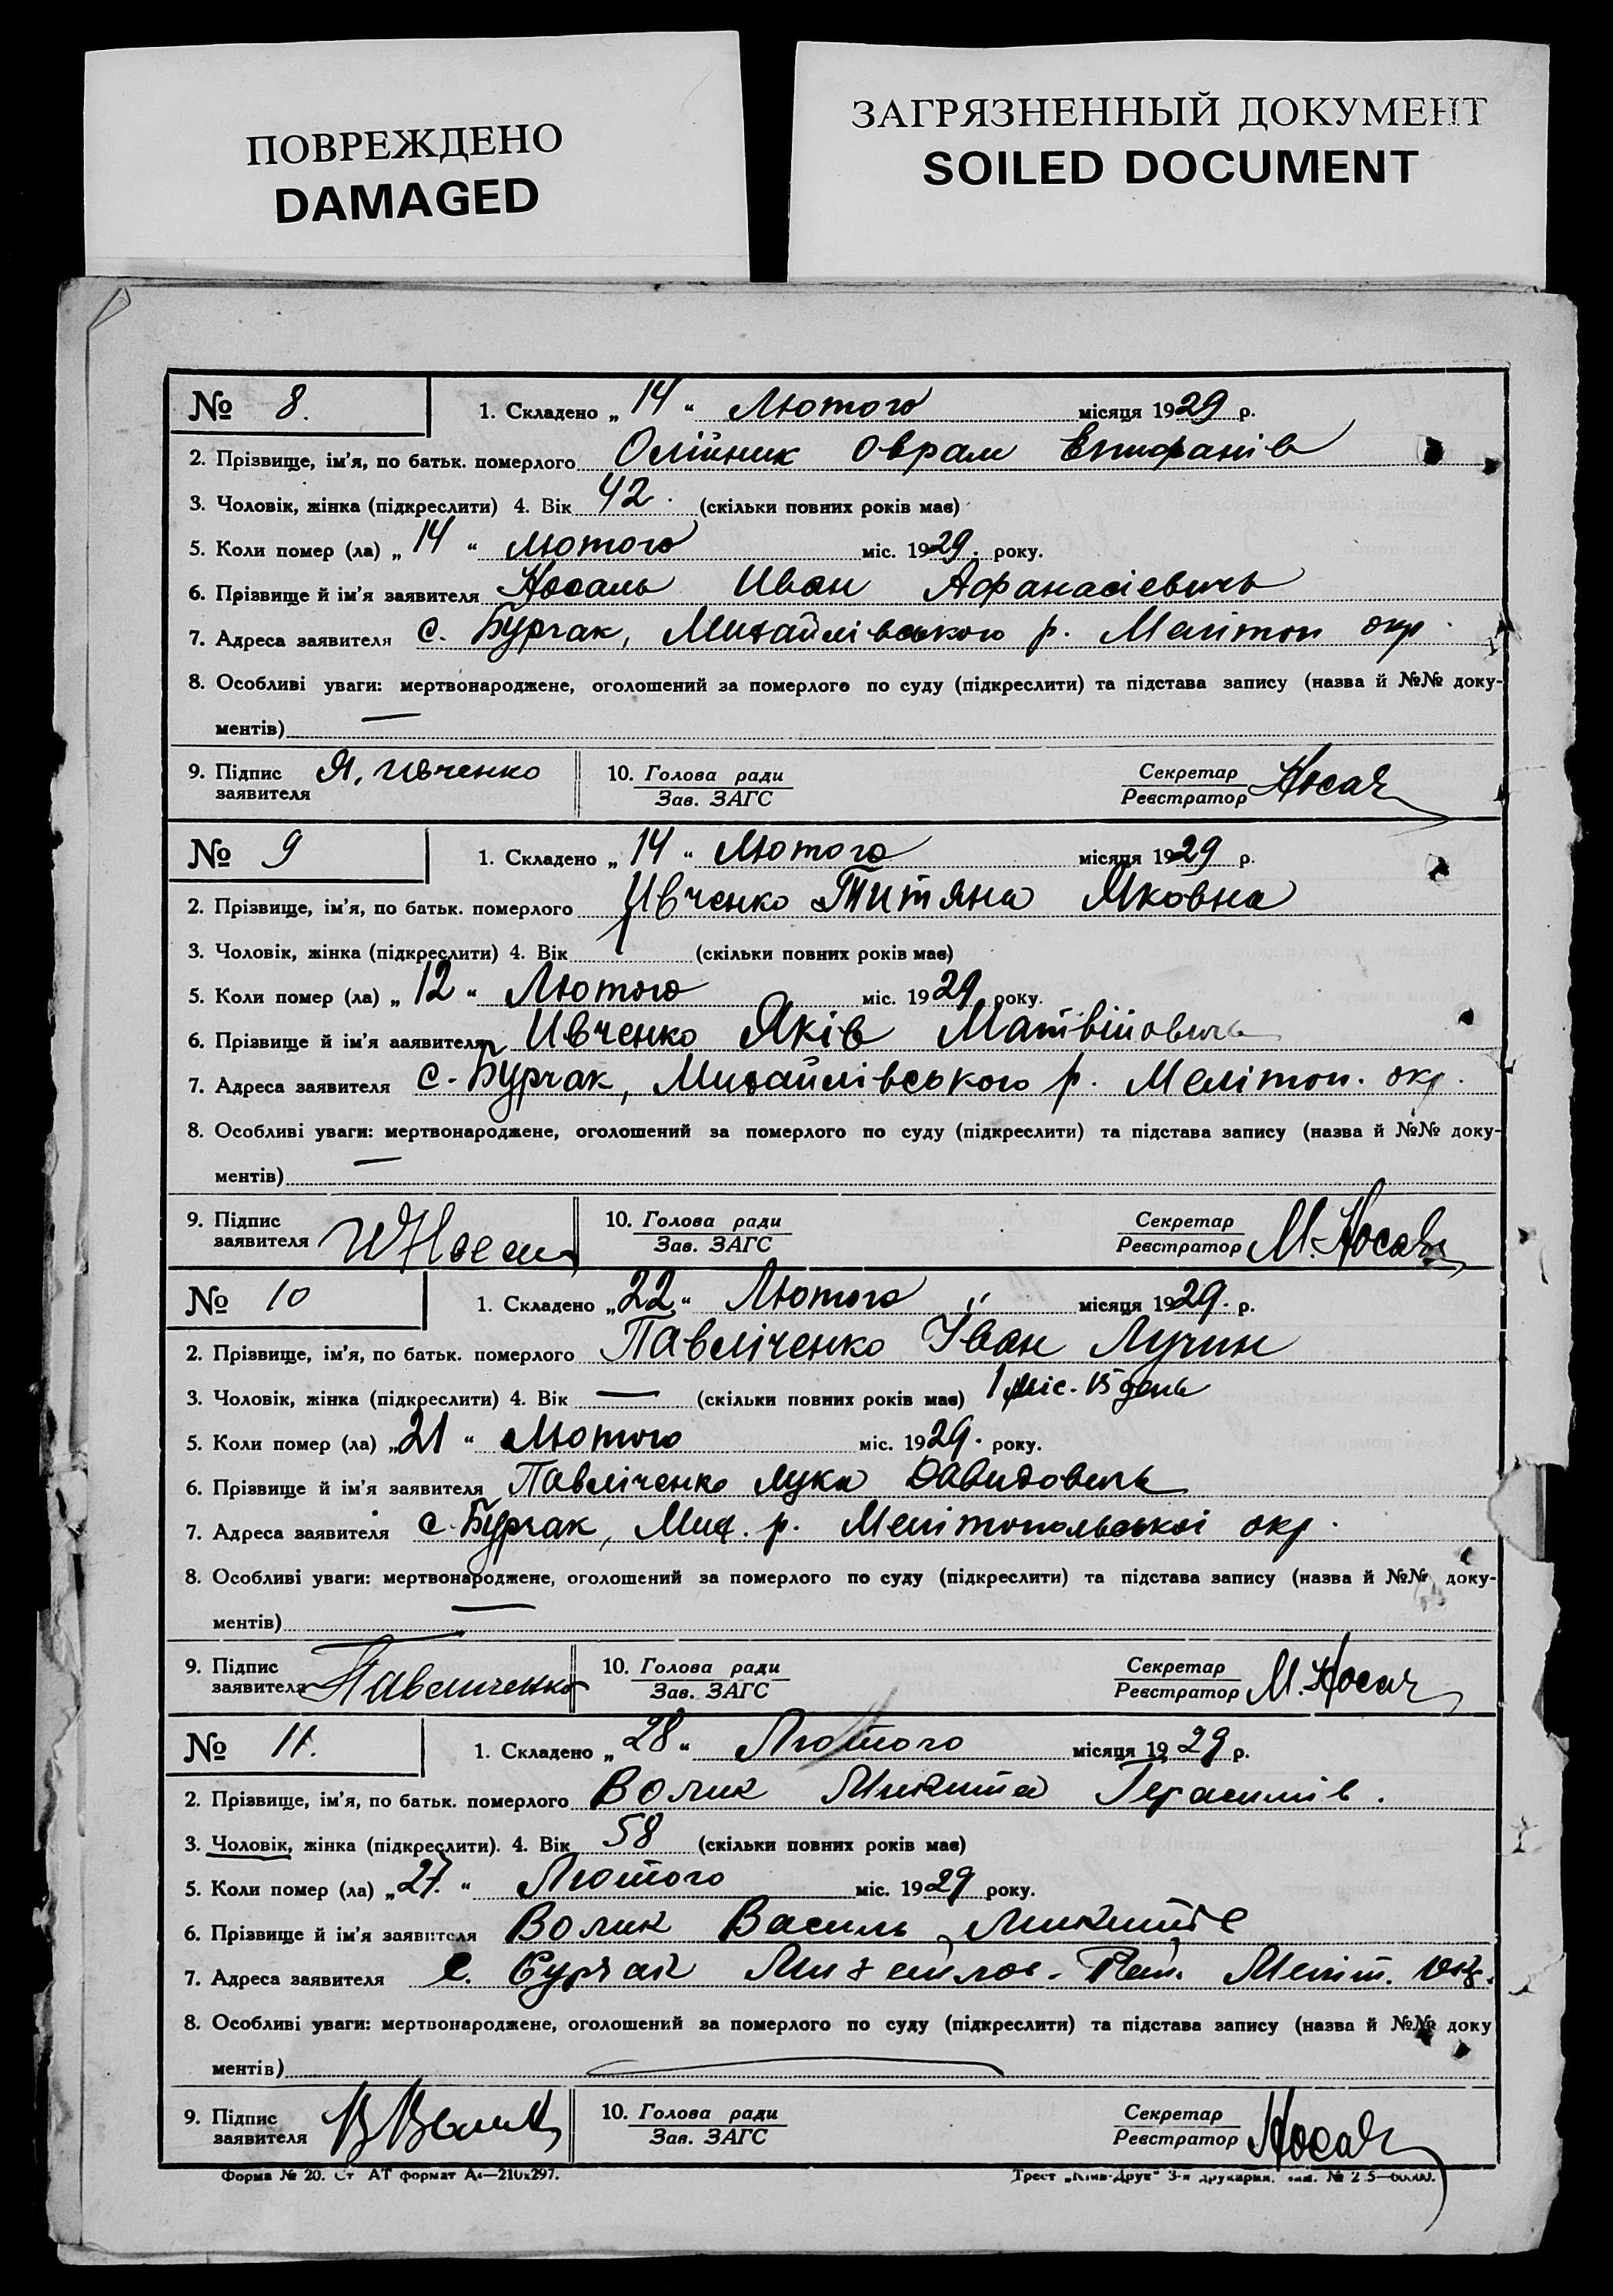 ПОВРЕЖДЕНО
DAMAGED
ЗАГРЯЗНЕННЫЙ ДОКУМЕНТ
SOILED DOCUMENT
№ 8. 1. Складено „ 14 “ Лютого місяця 1929 р.
2. Прізвище, ім'я, по батьк. померлого Олійник Оврам Епифанів
3. Чоловік, жінка (підкреслити) 4. Вік 42. (скільки повних років має)
5. Коли помер (ла) „ 14 “ Лютого міс. 1929. року.
6. Прізвище й ім'я заявителя Иван Афанасіевичь
7. Адреса заявителя с. Бурчак, Михайлівського р. Мелітоп окр.
8. Особливі уваги: мертвонароджене, оголошений за померлого по суду (підкреслити) та підстава запису (назва й №№ доку-
ментів) —
9. Підпис заявителя Я. Ивченко 10. Голова ради Зав. ЗАГС Секретар Реєстратор Носач
№ 9 1. Складено „ 14 “ Лютого місяця 1929 р.
2. Прізвище, ім'я, по батьк. померлого Ивченко Титяна Яковна
3. Чоловік, жінка (підкреслити) 4. Вік (скільки повних років має)
5. Коли помер (ла) „ 12 “ Лютого міс. 1929 року.
6. Прізвище й ім'я заявителя Ивченко Яків Матвійовичь
7. Адреса заявителя с. Бурчак, Михайлівського р. Мелітоп. окр.
8. Особливі уваги: мертвонароджене, оголошений за померлого по суду (підкреслити) та підстава запису (назва й №№ доку-
ментів) —
9. Підпис заявителя 10. Голова ради Зав. ЗАГС Секретар Реєстратор М. Носач
№ 10 1. Складено „ 22 “ Лютого місяця 1929. р.
2. Прізвище, ім'я, по батьк. померлого Павліченко Іван Лучин
3. Чоловік, жінка (підкреслити) 4. Вік — (скільки повних років має) 1 міс. 15 день
5. Коли помер (ла) „ 21 “ Лютого міс. 1929. року.
6. Прізвище й ім'я заявителя Павліченко Лука Давидовичь
7. Адреса заявителя с. Бурчак, Мих. р. Мелітопольської окр.
8. Особливі уваги: мертвонароджене, оголошений за померлого по суду (підкреслити) та підстава запису (назва й №№ доку-
ментів) —
9. Підпис заявителя Павличенко 10. Голова ради Зав. ЗАГС Секретар Реєстратор М. Носач
№ 11. 1. Складено „ 28 “ Лютого місяця 1929 р.
2. Прізвище, ім'я, по батьк. померлого Волик Микита Герасимів.
3. Чоловік, жінка (підкреслити). 4. Вік 58 (скільки повних років має)
5. Коли помер (ла) „ 27. “ Лютого міс. 1929 року.
6. Прізвище й ім'я заявителя Волик Василь
7. Адреса заявителя с. Бурчак Михайлов. Рай. Меліт. Окр.
8. Особливі уваги: мертвонароджене, оголошений за померлого по суду (підкреслити) та підстава запису (назва й №№ доку
ментів) —
9. Підпис заявителя 10. Голова ради Зав. ЗАГС Секретар Реєстратор Носач
Форма № 20. Ст АТ формат А4—210x297. Трест „Київ-Друк“ 3-я друкарня.